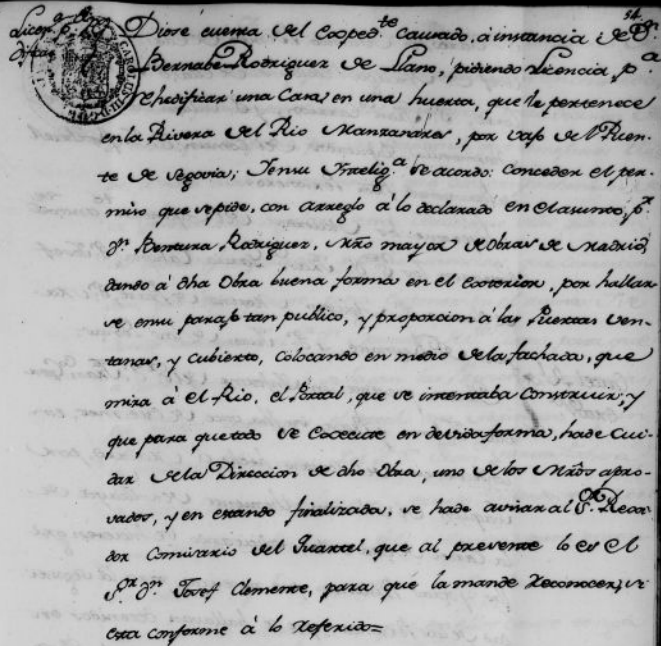 54.
Licenª pª Re
dificar
CAROLUS III D G
Diose cuenta del Exped.te Causado, á instancia de Dn
Bernabe Rodriguez de Llano, pidiendo Licencia, pª
rehedificar una Casa, en una huerta, que le pertenece
en la Rivera del Rio Manzanares, por vajo del Puen-
te de Segovia; y en su Yntelig.ª se acordo: conceder el per-
miso que se pide, con arreglo á lo declarado en el asunto, p.r
Dn Bentura Rodriguez, Mño mayor de obras de Madrid,
dando á dha Obra buena forma en el exterior, por hallar-
se en su parage tan publico, y proporcion á las Puertas ven-
tanas, y cubierto, colocando en medio de la fachada, que
mira á el Rio, el Portal, que se intentaba Construir; y
que para que todo se execute en devida forma, ha de Cui-
dar de la Direccion de dha Obra, uno de los Mños apro-
vados, y en estando finalizada, se ha de avisar al S.or Rexi-
dor Comisario del Quartel, que al presente lo es el
S.r Dn Josef Clemente, para que la mande reconocer, si
esta conforme á lo referido=